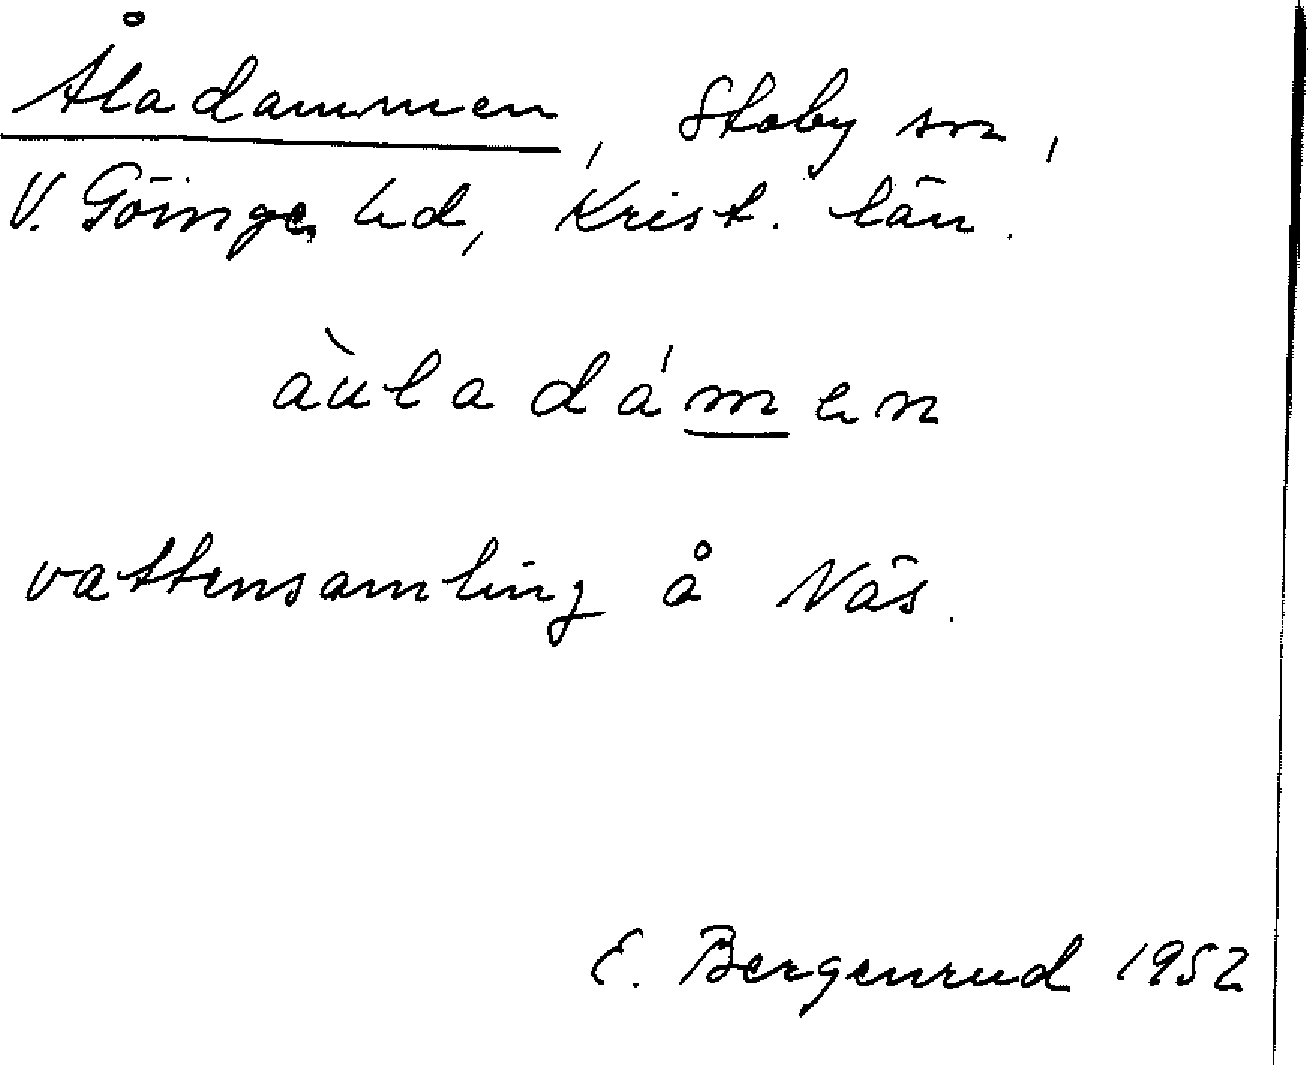 Åladammen, Stoby sn,
V. Göinge hd, Krist. län.
àuladám̲en
vattensamling å Näs.
E. Bergenrud 1952